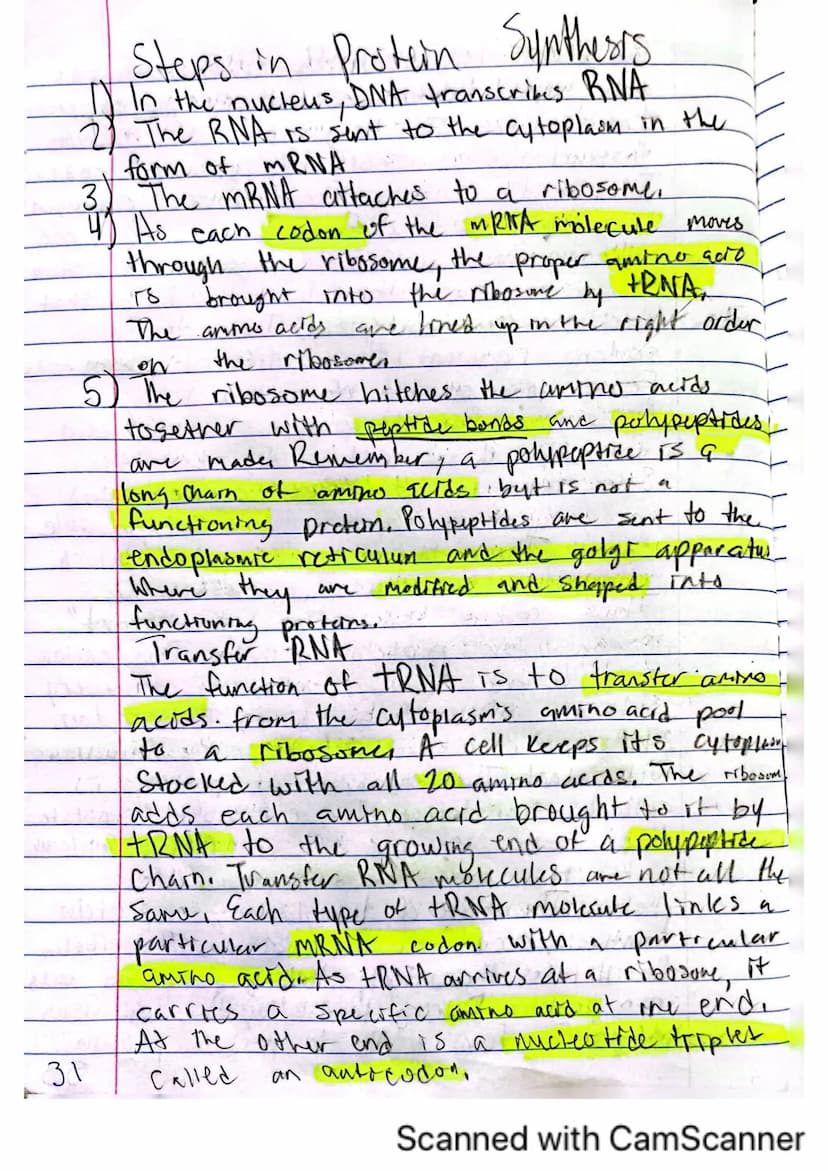 Steps in Protein Synthesis
1) In the nucleus, DNA transcribes RNA
2) The RNA is sent to the cytoplasm in the
form of mRNA
3) The mRNA attaches to a ribosome.
4) As each codon of the mRNA molecule moves
through the ribosome, the proper amino acid
is brought into the ribosome by tRNA.
The amino acids are lined up in the right order
on the ribosome.
5) The ribosome hitches the amino acids
together with peptide bonds and polypeptides
are made. Remember, a polypeptide is a
long chain of amino acids but is not a
functioning protein. Polypeptides are sent to the
endoplasmic reticulum and the golgi apparatus
where they are modified and shaped into
functioning proteins.
Transfer RNA
The function of tRNA is to transfer amino
acids from the cytoplasm's amino acid pool
to a ribosome. A cell keeps it's cytoplasm
stocked with all 20 amino acids. The ribosom
adds each amino acid brought to it by
tRNA to the growing end of a polypeptide
chain. Transfer RNA molecules are not all the
same. Each type of tRNA molecule links a
particular mRNA codon with a particular
amino acid. As tRNA arrives at a ribosome, it
carries a specific amino acid at one end.
At the other end is a nucleotide triplet
called an anticodon.
31
Scanned with CamScanner